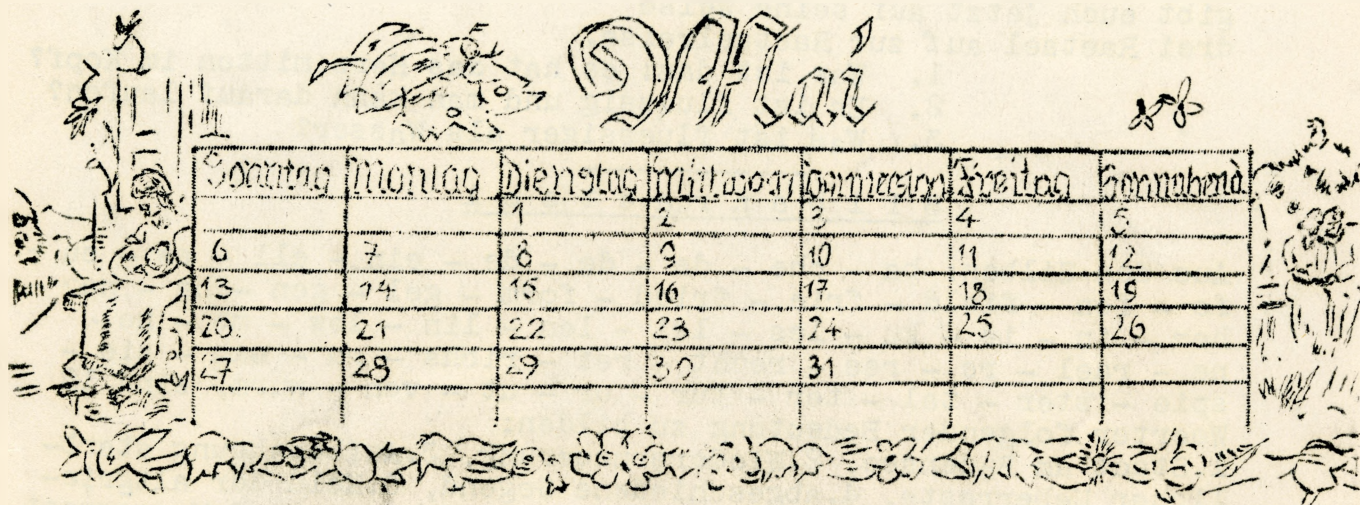 Mai
Sonntag Montag Dienstag Mittwoch Donnerstag Freitag Sonnabend
1 2 3 4 5
6 7 8 9 10 11 12
13 14 15 16 17 18 19
20 21 22 23 24 25 26
27 28 29 30 31